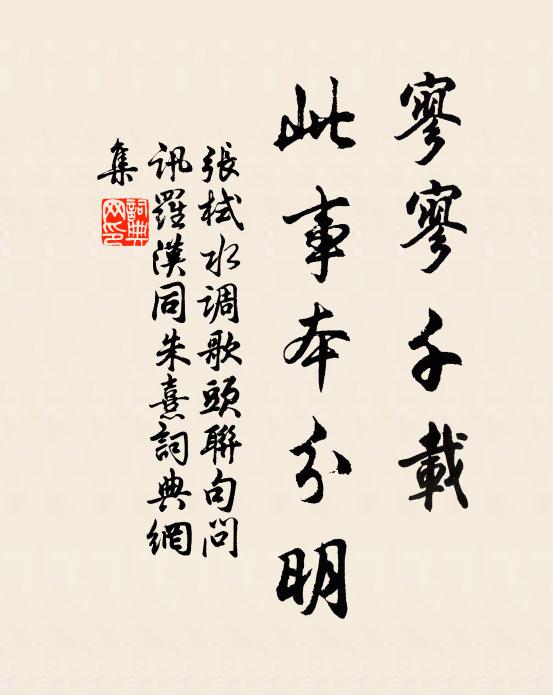 寥寥千載
此事本分明
張栻水調歌頭聯句問
訊羅漢同朱熹詞典網
集
詞典网印